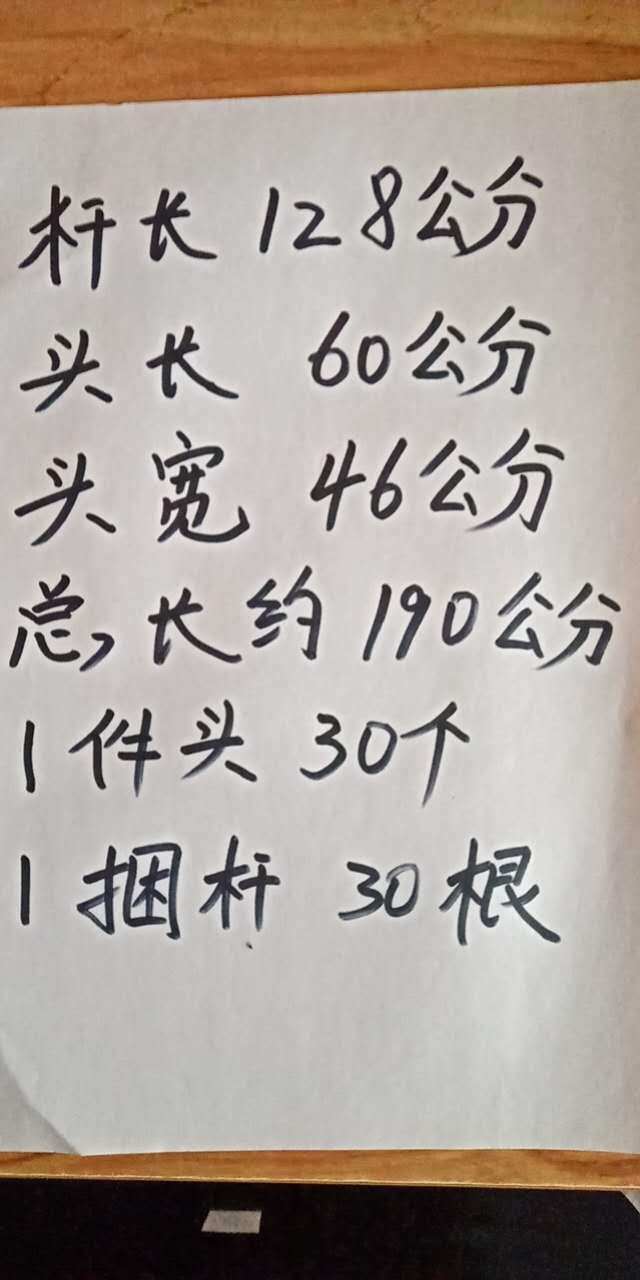 杆长 128公分
头长 60公分
头宽 46公分
总长约 190公分
1件头 30个
1捆杆 30根